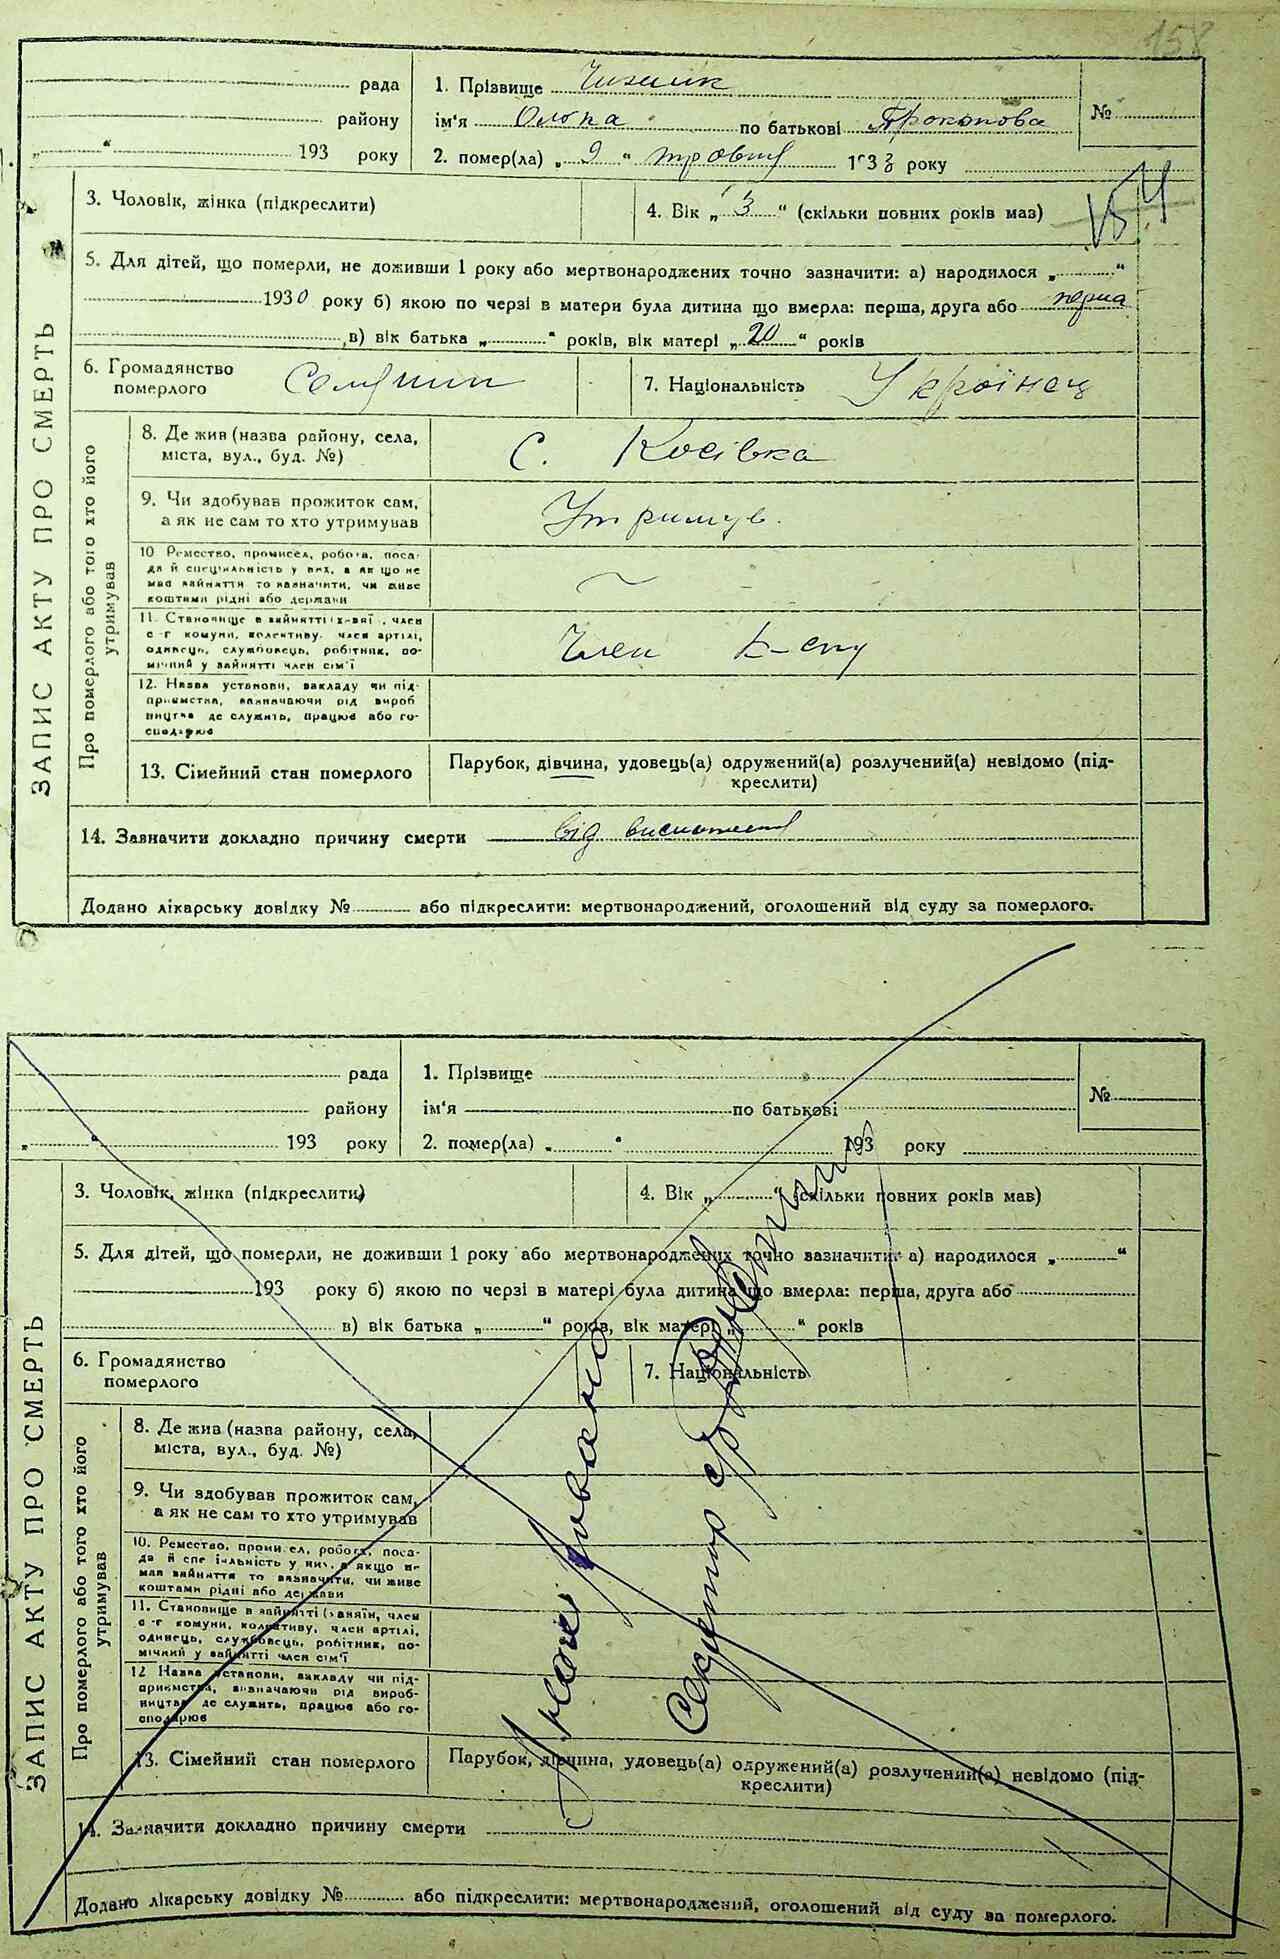 158
рада
району
" " 193 року
1. Прізвище Чизшик
ім'я Ольпа по батькові Прокопова
2. помер(ла) „ 9 " травня 1933 року
№
3. Чоловік, жінка (підкреслити)
4. Вік „ 3 " (скільки повних років маз)
ЗАПИС АКТУ ПРО СМЕРТЬ
5. Для дітей, що померли, не доживши 1 року або мертвонароджених точно зазначити: а) народилося „ "
1930 року б) якою по черзі в матери була дитина що вмерла: перша, друга або перша
в) вік батька „ " років, вік матері „ 20 " років
6. Громадянство
померлого
Селянин
7. Національність Українец
Про померлого або того хто його
утримував
8. Де жив (назва району, села,
міста, вул., буд. №)
С. Косівка
9. Чи здобував прожиток сам,
а як не сам то хто утримував
Утримув.
10 Ремество, промисел, робота, поса-
да й спеціяльність у них, а як що не
мав зайняття то вазначити, чи живе
коштами рідні або держави
11. Становище в зайнятті (хазяїн, член
с-г комуни, колективу, член артілі,
одинець, службовець, робітник, по-
мічний у зайнятті член сім'ї
Член к-спу
12. Назва установи, вакладу чи під-
приємства, вазначаючи рід вироб
ництва де служить, працює або го-
сподарює
13. Сімейний стан померлого
Парубок, дівчина, удовець(а) одружений(а) розлучений(а) невідомо (під-
креслити)
14. Зазначити докладно причину смерти від виснаження
Додано лікарську довідку № або підкреслити: мертвонароджений, оголошений від суду за померлого.
рада
району
„ " 193 року
1. Прізвище
ім'я по батькові
2. помер(ла) „ " 193 року
№
3. Чоловік, жінка (підкреслити)
4. Вік „ " (скільки повних років мав)
ЗАПИС АКТУ ПРО СМЕРТЬ
5. Для дітей, що померли, не доживши 1 року або мертвонароджених точно вазначити: а) народилося „ "
193 року б) якою по черзі в матері була дитина що вмерла: перша, друга або
в) вік батька „ " років, вік матері „ " років
6. Громадянство
померлого
7. Національність
Про померлого або того хто його
утримував
8. Де жив (назва району, села,
міста, вул., буд. №)
9. Чи здобував прожиток сам,
а як не сам то хто утримував
10. Ремество, промисел, робота, поса-
да й спеціяльність у них, а якщо не
мав зайняття то вазначити, чи живе
коштами рідні або держави
11. Становище в зайнятті (хазяїн, член
с-г комуни, колективу, член артілі,
одинець, службовець, робітник, по-
мічний у зайнятті член сім'ї
12 Назва установи, вакладу чи під-
приємства, вазначаючи рід вироб-
ництва де служить, працює або го-
сподарює
13. Сімейний стан померлого
Парубок, дівчина, удовець(а) одружений(а) розлучений(а) невідомо (під-
креслити)
14. Зазначити докладно причину смерти
Додано лікарську довідку № або підкреслити: мертвонароджений, оголошений від суду за померлого.
Секретар с/р